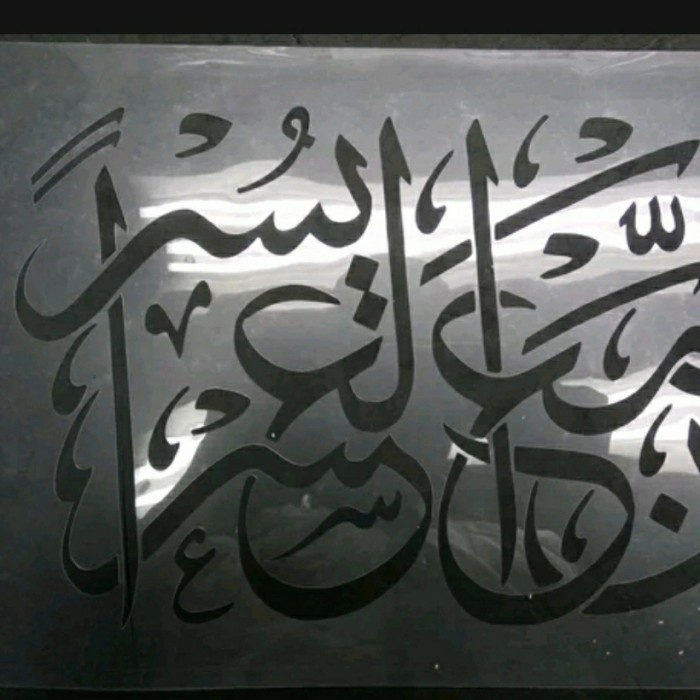 إنّ مَعَ العُسْرِ يُسْراً